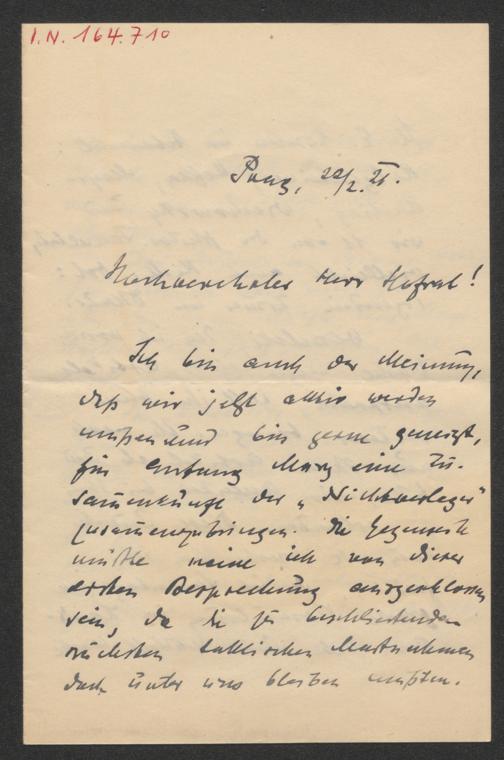 I.N. 164.710
Prag, 22/2. 21.
Hochverehrter Herr Hofrat!
Ich bin auch der Meinung,
daß wir jetzt aktiv werden
müßen und bin gerne geneigt,
für Anfang März eine Zu-
sam̄enkunft der „Nichtverleger"
zusam̄enzubringen. Die Gegenseite
müßte meine ich von dieser
ersten Besprechung ausgeschlossen
sein, da die zu beschließenden
nächsten taktischen Maßnahmen
doch unter uns bleiben müßten.